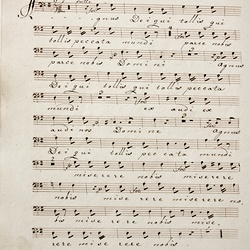 tutti
gnus Dei qui tollis qui
tollis peccata mundi parce nobis
parce nobis Domini Agnus
Dei qui tollis qui tollis peccata
mundi ex audi ex
audi nos Domi ne Agnus
Dei qui tollis pec cata mundi
miserere nobis miserere
nobis mise rere miserere no
bis mise rere nobis mise
rere mise rere nobis